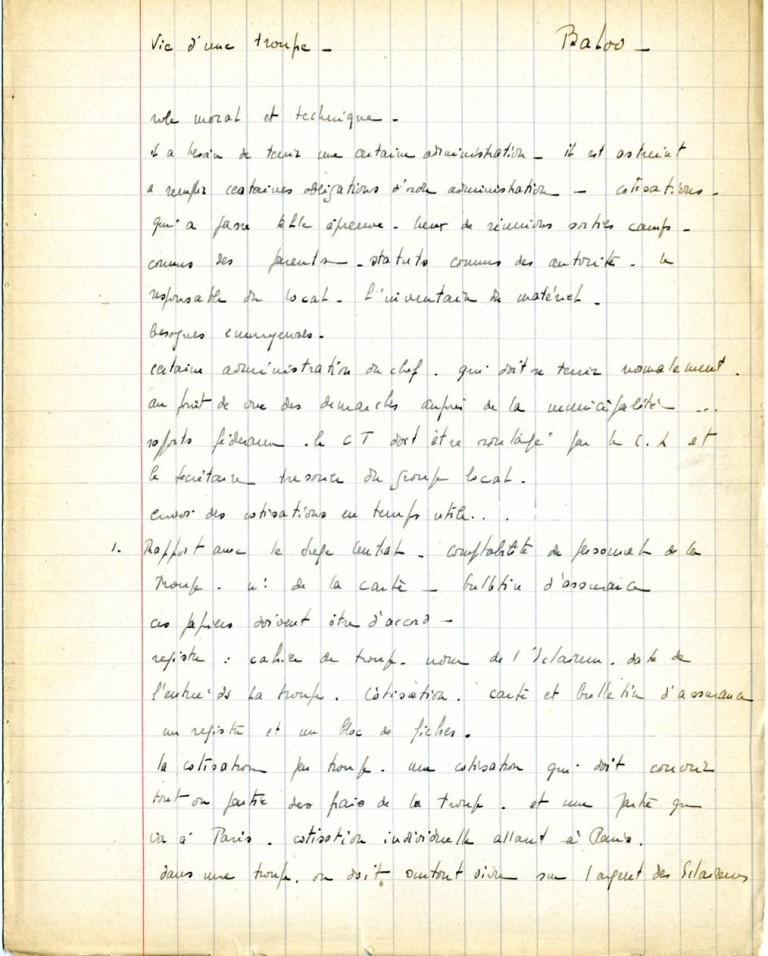 Vie d'une troupe - Baloo -
role moral et technique -
il a besoin de tenir une certaine administration - il est astreint
a remplir certaines obligations d'ordre administration - cotisations -
qui a passé telle épreuve - lieux de réunions sorties camps -
connus des parents - statuts connus des autorité - le
responsable du local - l'inventaire du matériel -
besognes ennuyeuses -
certaine administration du chef. qui doit se tenir normalement.
au point de vue des demarches auprès de la municipalité ...
rapports fédéraux. le CT doit être soulagé par le C. L et
le secrétaire tresorier du group local.
envoi des cotisations en temps utile...
1. Rapport avec le siege central - comptabilité du personnel de la
troupe. n° de la carte - bulletin d'assurance
ces papiers doivent être d'accord -
registre : cahier de troupe. nom de l'Eclaireur. date de
l'entrée ds la troupe. Cotisation. carte et bulletin d'assurance
un registre et un bloc de fiches.
la cotisation par troupe. une cotisation qui doit couvrir
tout ou partie des frais de la troupe. et une partie qui
va à Paris. cotisation individuelle allant à Paris.
dans une troupe. on doit surtout vivre sur l'argent des Eclaireurs